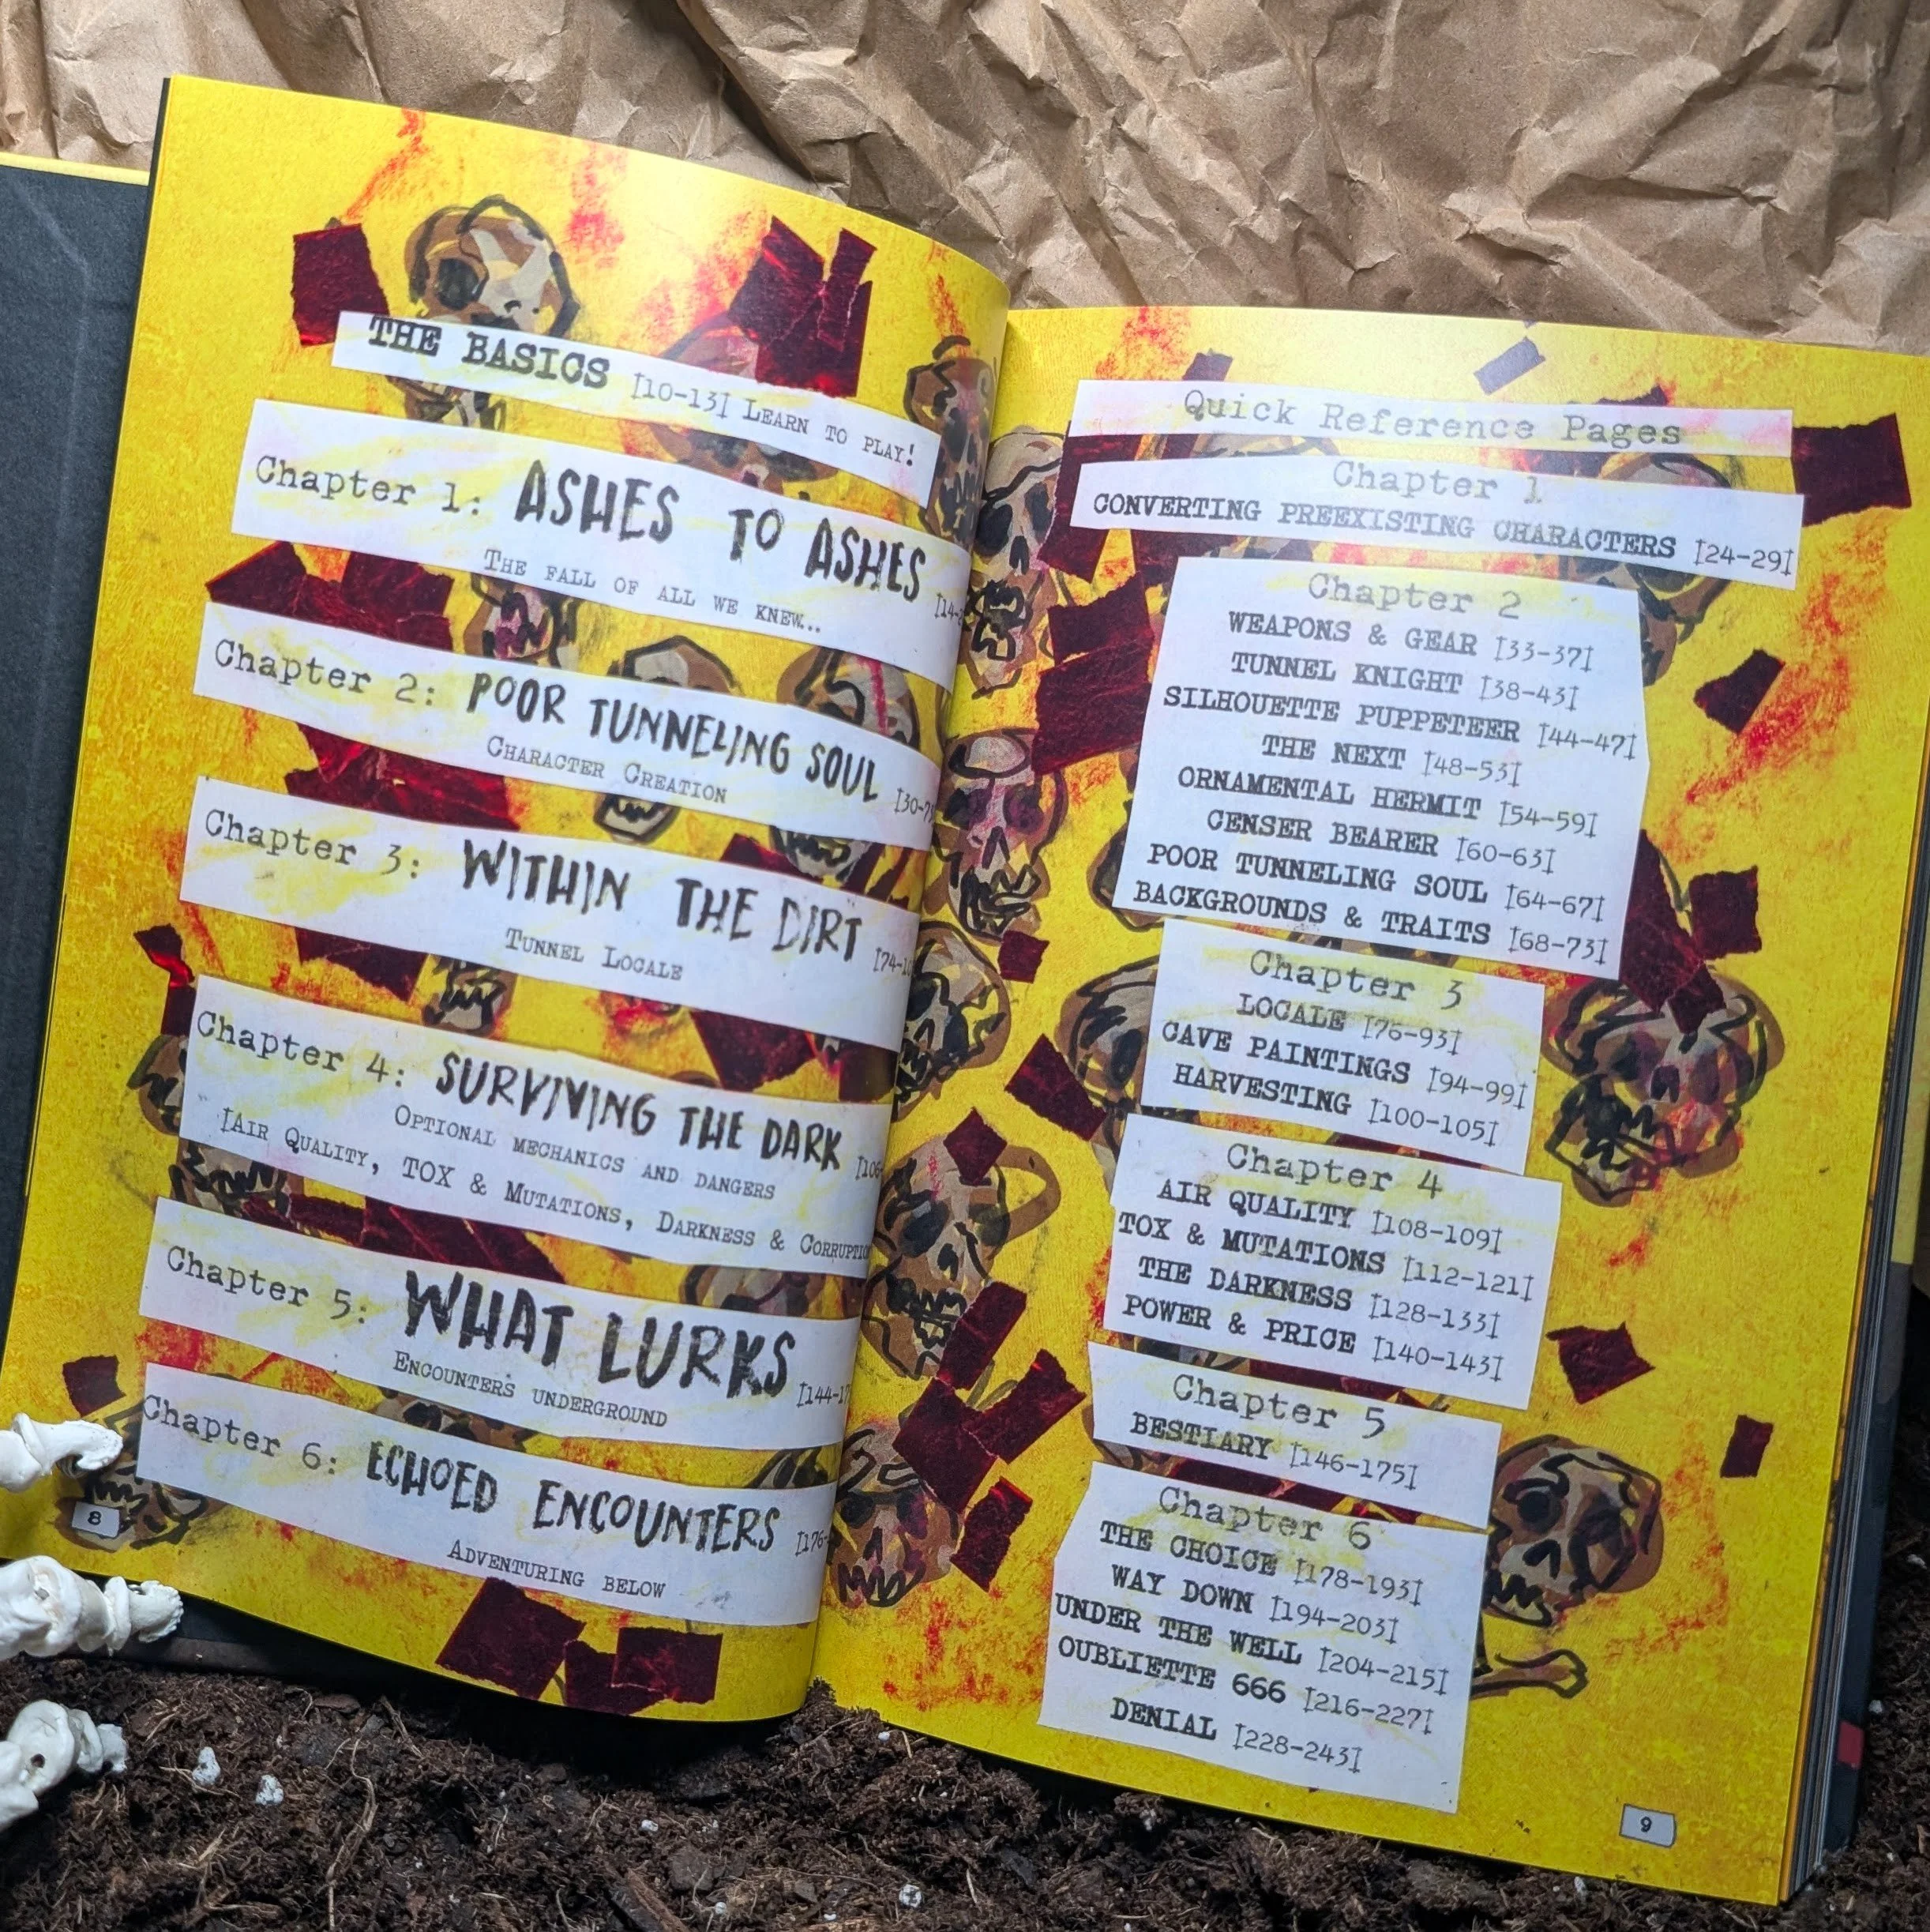 THE BASICS [10-13] LEARN TO PLAY!
Chapter 1: ASHES TO ASHES
THE FALL OF ALL WE KNEW...
Chapter 2: POOR TUNNELING SOUL
CHARACTER CREATION
Chapter 3: WITHIN THE DIRT
TUNNEL LOCALE
Chapter 4: SURVIVING THE DARK
OPTIONAL MECHANICS AND DANGERS
[AIR QUALITY, TOX & MUTATIONS, DARKNESS &
Chapter 5: WHAT LURKS
ENCOUNTERS UNDERGROUND
Chapter 6: ECHOED ENCOUNTERS
ADVENTURING BELOW
8
Quick Reference Pages
Chapter 1
CONVERTING PREEXISTING CHARACTERS [24-29]
Chapter 2
WEAPONS & GEAR [33-37]
TUNNEL KNIGHT [38-43]
SILHOUETTE PUPPETEER [44-47]
THE NEXT [48-53]
ORNAMENTAL HERMIT [54-59]
CENSER BEARER [60-63]
POOR TUNNELING SOUL [64-67]
BACKGROUNDS & TRAITS [68-73]
Chapter 3
LOCALE [76-93]
CAVE PAINTINGS [94-99]
HARVESTING [100-105]
Chapter 4
AIR QUALITY [108-109]
TOX & MUTATIONS [112-121]
THE DARKNESS [128-133]
POWER & PRICE [140-143]
Chapter 5
BESTIARY [146-175]
Chapter 6
THE CHOICE [178-193]
WAY DOWN [194-203]
UNDER THE WELL [204-215]
OUBLIETTE 666 [216-227]
DENIAL [228-243]
9